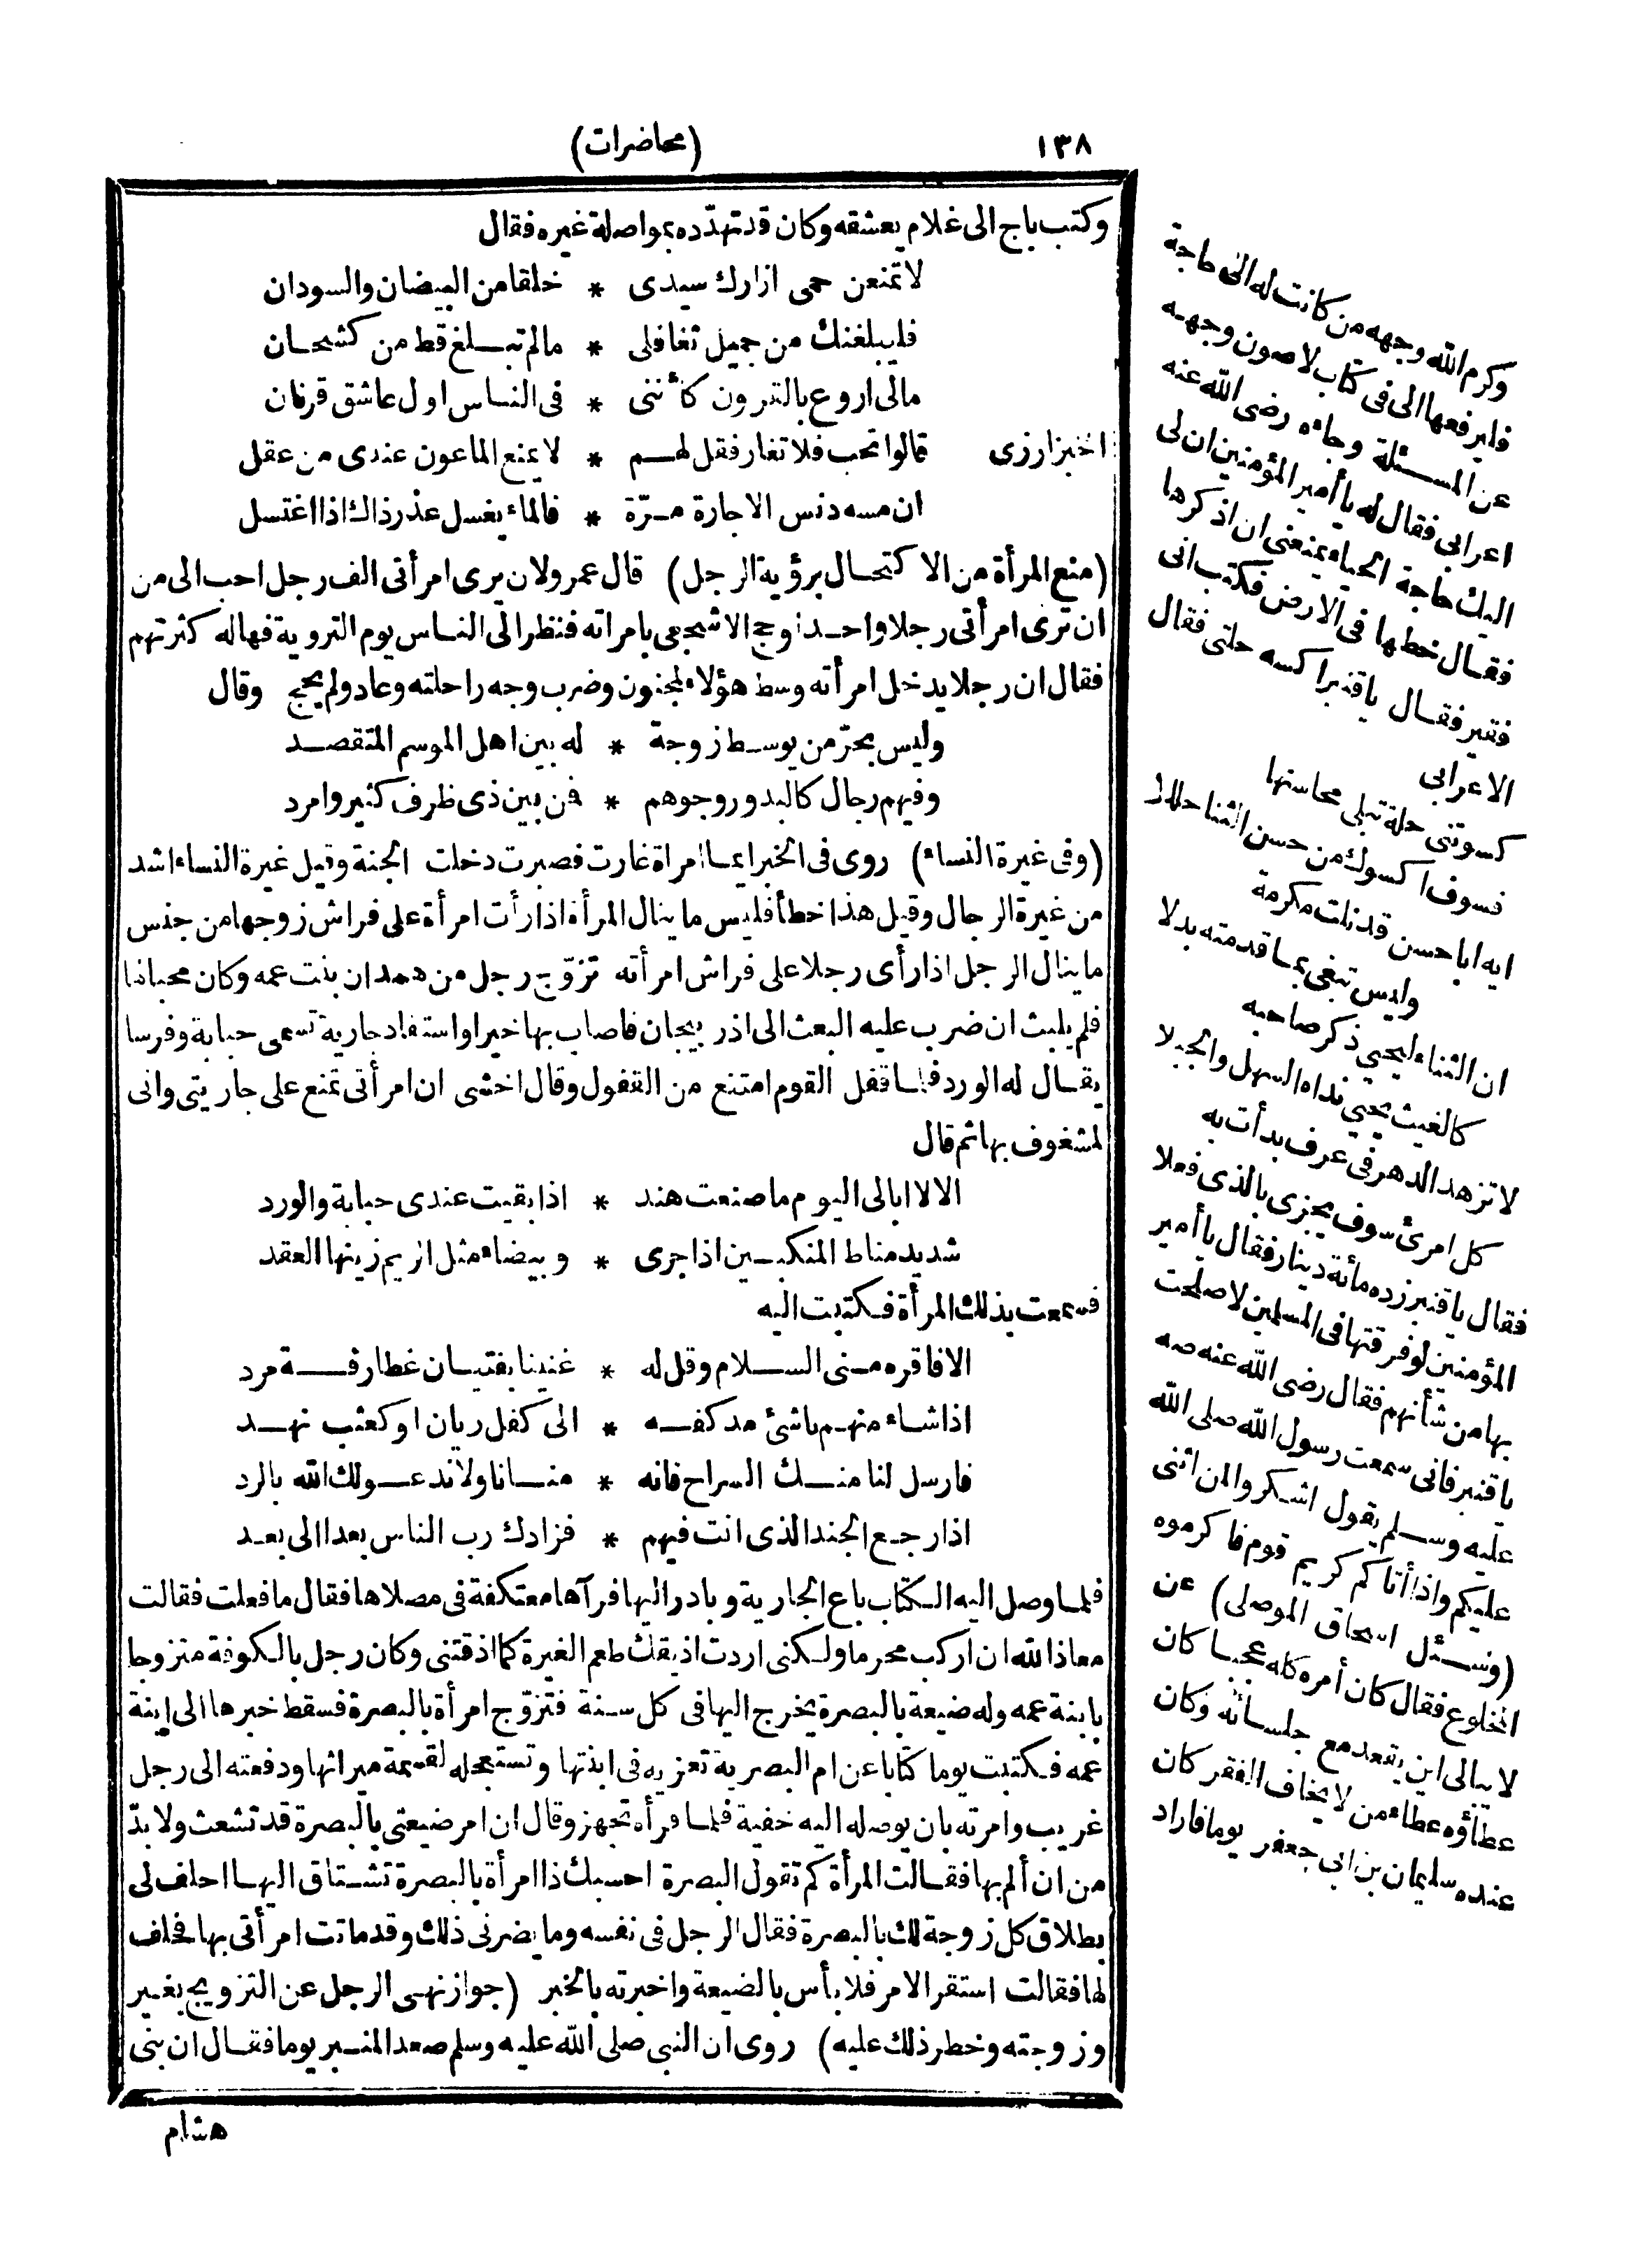 ١٣٨
(محاضرات)
وكتب باج الى غلام يعشقه وكان قد تهدّده بمواصلة غيره فقال
لا تمنعن حمى ازارك سيدى * خلقا من البيضان والسودان
فليبلغنك من جميل تغافلى * مالم تبـلغ قط من كشحـان
مالى اروع بالقرون كأننى * فى النـاس اول عاشق قرنان
الخبزارزى قالوا تحب فلا تغار فقل لهـم * لا يمنع الماعون عندى من عقل
ان مسه دنس الاجارة مـرّة * فالماء يغسل عذر ذاك اذا اغتسل
(منع المرأة من الاكتحـال برؤية الرجل) قال عمر ولان يرى امرأتى الف رجل احب الى من
ان ترى امرأتى رجلا واحـدا وحج الاشجعى بامراته فنظر الى النـاس يوم التروية فهاله كثرتهم
فقال ان رجلا يدخل امرأته وسط هؤلاء لمجنون وضرب وجه راحلته وعاد ولم يحج وقال
وليس بحرّ من يوسـط زوجة * له بين اهل الموسم المتقصـد
وفيهم رجال كالبدور وجوههم * فمن بين ذى ظرف كثير وامرد
(وفى غيرة النساء) روى فى الخبر ايمـا امراة غارت فصبرت دخلت الجنة وقيل غيرة النساء اشد
من غيرة الرجال وقيل هذا خطأ فليس ما ينال المرأة اذا رأت امرأة على فراش زوجها من جنس
ما ينال الرجل اذا رأى رجلا على فراش امرأته تزوّج رجل من همدان بنت عمه وكان محبا لها
فلم يلبث ان ضرب عليه البعث الى اذربيجان فاصاب بها خيرا واستفاد جارية تسمى حبابة وفرسا
يقـال له الورد فلـما قفل القوم امتنع من القفول وقال اخشى ان امرأتى تمنع على جاريتى وانى
لمشغوف بها ثم قال
الا لا ابالى اليوم ما صنعت هند * اذا بقيت عندى حبابة والورد
شديد مناط المنكبـين اذا جرى * وبيضاء مثل الريم زينها العقد
فسمعت بذلك المرأة فكتبت اليه
الا فاقره مـنى السـلام وقل له * غنينا بفتيـان غطارفـة مرد
اذا شاء منهـم ناشئ مد كفـه * الى كفل ريان او كعثب نهـد
فارسل لنا منـك السراح فانه * منـانا ولا ندعـو لك الله بالرد
اذا رجـع الجند الذى انت فيهم * فزادك رب الناس بعدا الى بعـد
فلمـا وصل اليه الـكتاب باع الجارية وبادر اليها فرآها معتكفة فى مصلاها فقال ما فعلت فقالت
معاذ الله ان اركب محرما ولكنى اردت اذيقك طعم الغيرة كما اذقتنى وكان رجل بالكوفة متزوجا
بابنة عمه وله ضيعة بالبصرة يخرج اليها فى كل سنة فتزوّج امرأة بالبصرة فسقط خبرها الى ابنة
عمه فكتبت يوما كتابا عن ام البصرية تعزيه فى ابنتها وتستعجله لقسمة ميراثها ودفعته الى رجل
غريب وامرته بان يوصله اليه خفية فلمـا قرأه تجهز وقال ان امر ضيعتى بالبصرة قد تشعث ولا بدّ
من ان ألم بها فقـالت المرأة كم تقول البصرة احسبك ذا امرأة بالبصرة تشـتاق اليهـا احلف لى
بطلاق كل زوجة لك بالبصرة فقال الرجل فى نفسه وما يضرنى ذلك وقد ماتت امرأتى بها فحلف
لها فقالت استقر الامر فلا بأس بالضيعة واخبرته بالخبر (جواز نهـى الرجل عن التزويج بغير
وزوجته وخطر ذلك عليه) روى ان النبى صلى الله عليه وسلم صعد المنـبر يوما فقـال ان بنى
هشام
وكرم الله وجهه من كانت له الى حاجة
فليرفعها الى فى كتاب لاصون وجهه
عن المسـئلة وجاءه رضى الله عنه
اعرابى فقال له يا أمير المؤمنين ان لى
اليك حاجة الحياء يمنعنى ان اذكرها
فقـال خطها فى الارض فكتب انى
فقير فقـال ياقنبر اكسه حلتى فقال
الاعرابى
كسوتنى حلة تبلى محاسنها
فسوف اكسوك من حسن الثنا حللا
ايه ابا حسن قد نلت مكرمة
وليس تبغى بمـا قدمته بدلا
ان الثناء ليحيى ذكر صاحبه
كالغيث يحيى نداه السهل والجبلا
لا تزهد الدهر فى عرف بدأت به
كل امرئ سوف يجزى بالذى فعلا
فقال ياقنبر زده مائة دينار فقال يا أمير
المؤمنين لو فرقتها فى المسلمين لاصلحت
بها من شأنهم فقال رضى الله عنه صه
ياقنبر فانى سمعت رسول الله صلى الله
عليه وسـلم يقول اشـكروا لمن اثنى
عليكم واذا أتاكم كريم قوم فاكرموه
(وسـئل اسحاق الموصلى) عن
المخلوع فقال كان أمره كله عجبـا كان
لا يبالى اين يقعد مع جلسـائه وكان
عطاؤه عطاء من لا يخاف الفقر كان
عنده سليمان بن ابى جعفر يوما فاراد